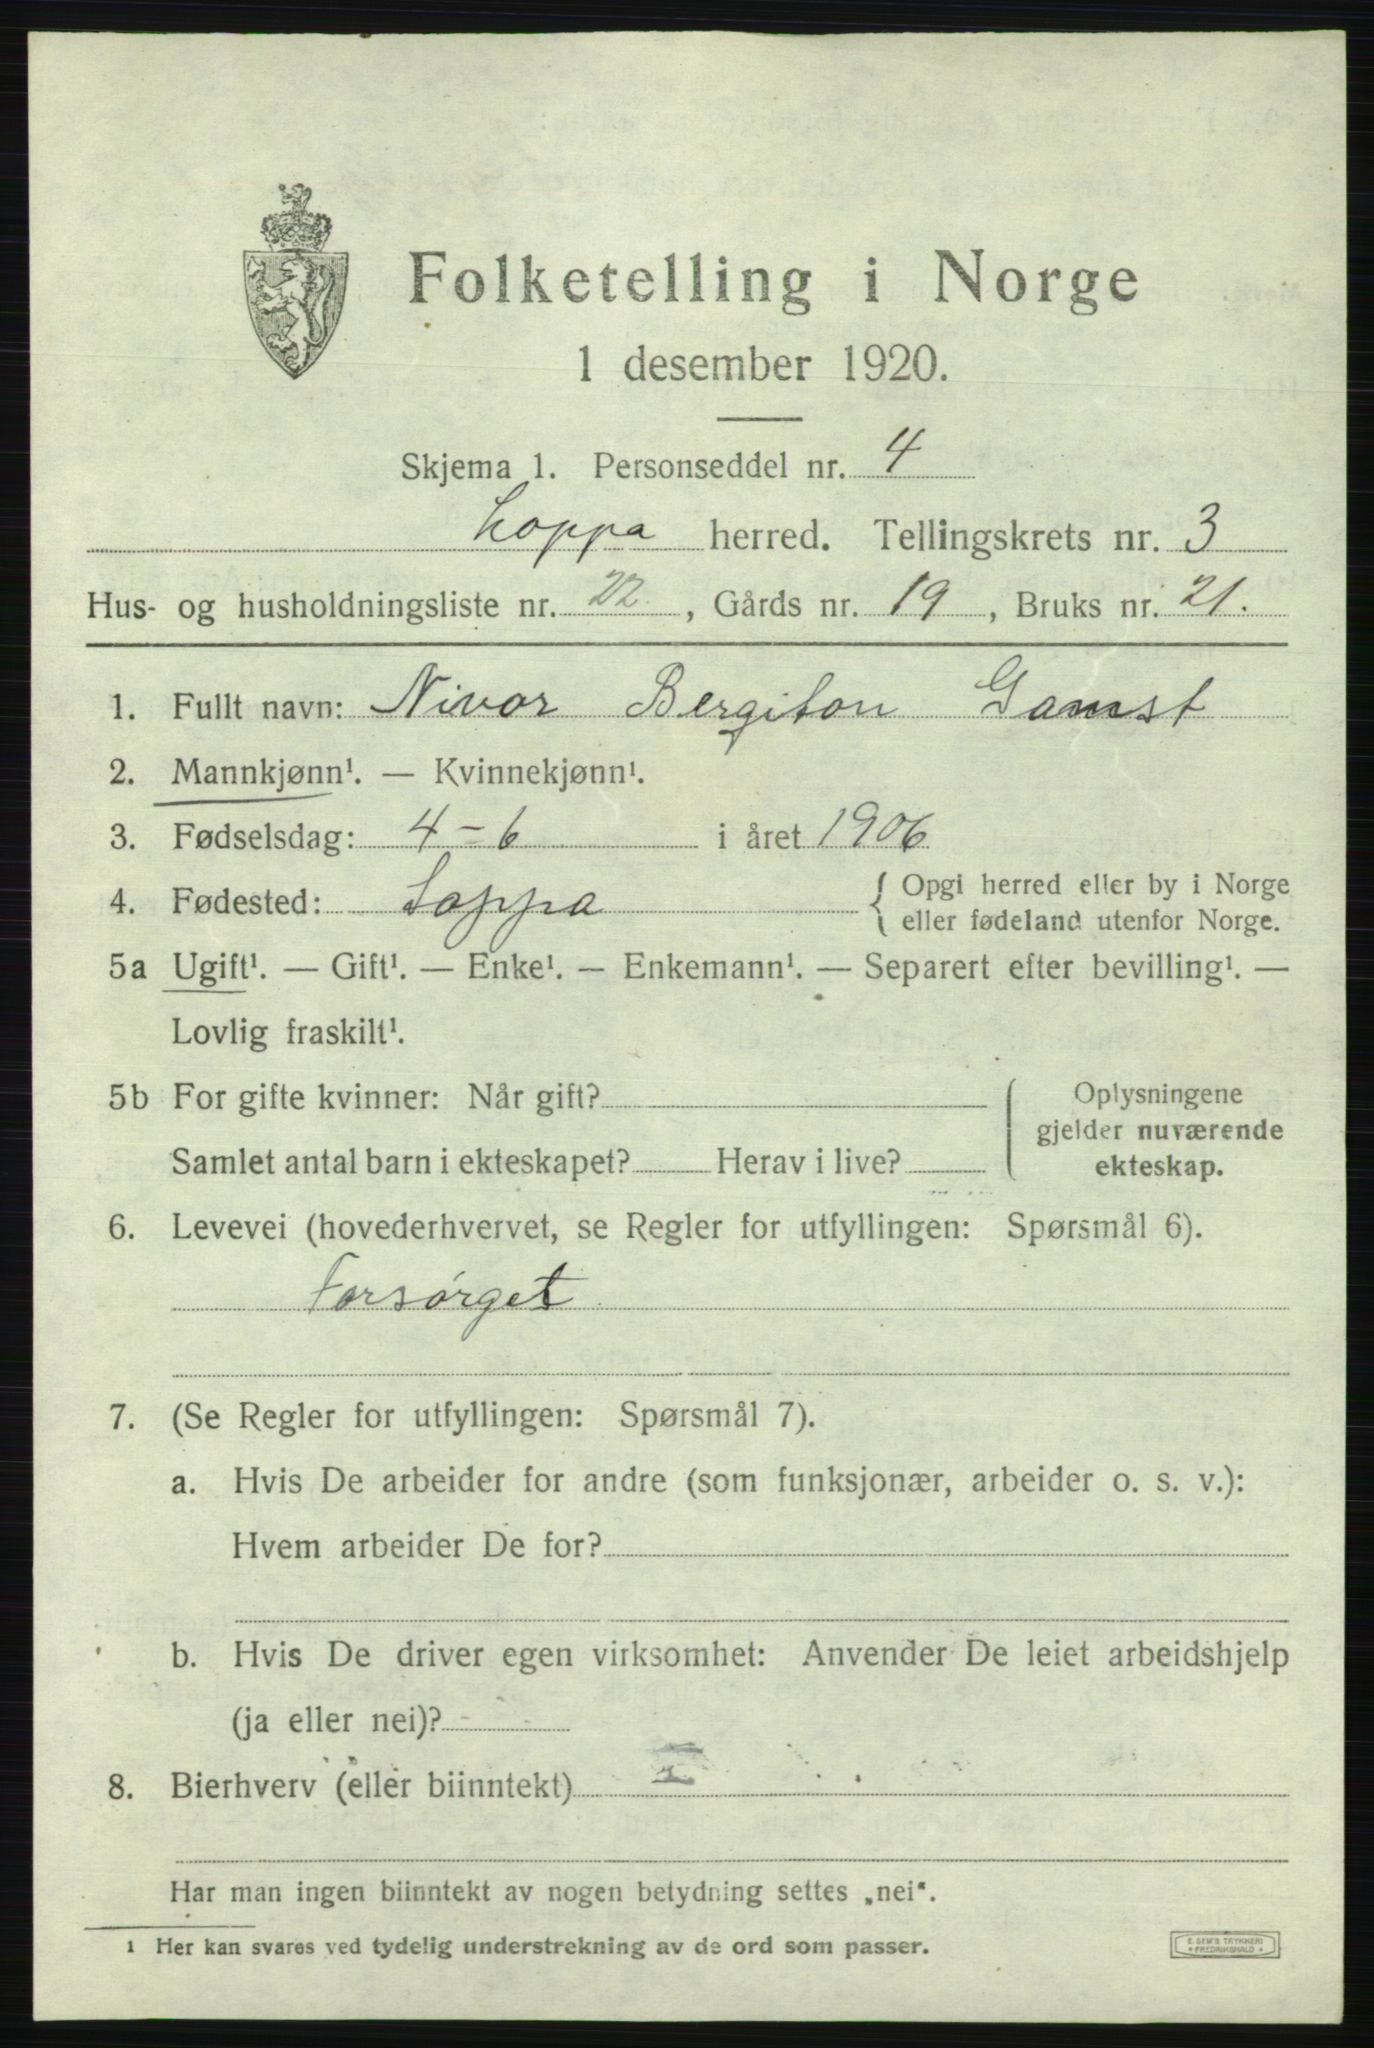 Folketelling i Norge
1 desember 1920.
Skjema 1. Personseddel nr. 4
Loppa herred. Tellingskrets nr. 3
Hus- og husholdningsliste nr. 22, Gårds nr. 19, Bruks nr. 21.
1. Fullt navn: Nivor Bergiton Gamst
2. Mannkjønn¹. — Kvinnekjønn¹.
3. Fødselsdag: 4-6 i året 1906
4. Fødested: Loppa { Opgi herred eller by i Norge
eller fødeland utenfor Norge.
5a Ugift¹. — Gift¹. — Enke¹. — Enkemann¹. — Separert efter bevilling¹. —
Lovlig fraskilt¹.
5b For gifte kvinner: Når gift?
Samlet antal barn i ekteskapet? Herav i live?
Oplysningene
gjelder nuværende
ekteskap.
6. Levevei (hovederhvervet, se Regler for utfyllingen: Spørsmål 6).
Forsørget
7. (Se Regler for utfyllingen: Spørsmål 7).
a. Hvis De arbeider for andre (som funksjonær, arbeider o. s. v.):
Hvem arbeider De for?
b. Hvis De driver egen virksomhet: Anvender De leiet arbeidshjelp
(ja eller nei)?
8. Bierhverv (eller biinntekt)
Har man ingen biinntekt av nogen betydning settes „nei“.
1 Her kan svares ved tydelig understrekning av de ord som passer.
E. SEM'S TRYKKERI
• FREDRIKSHALD •